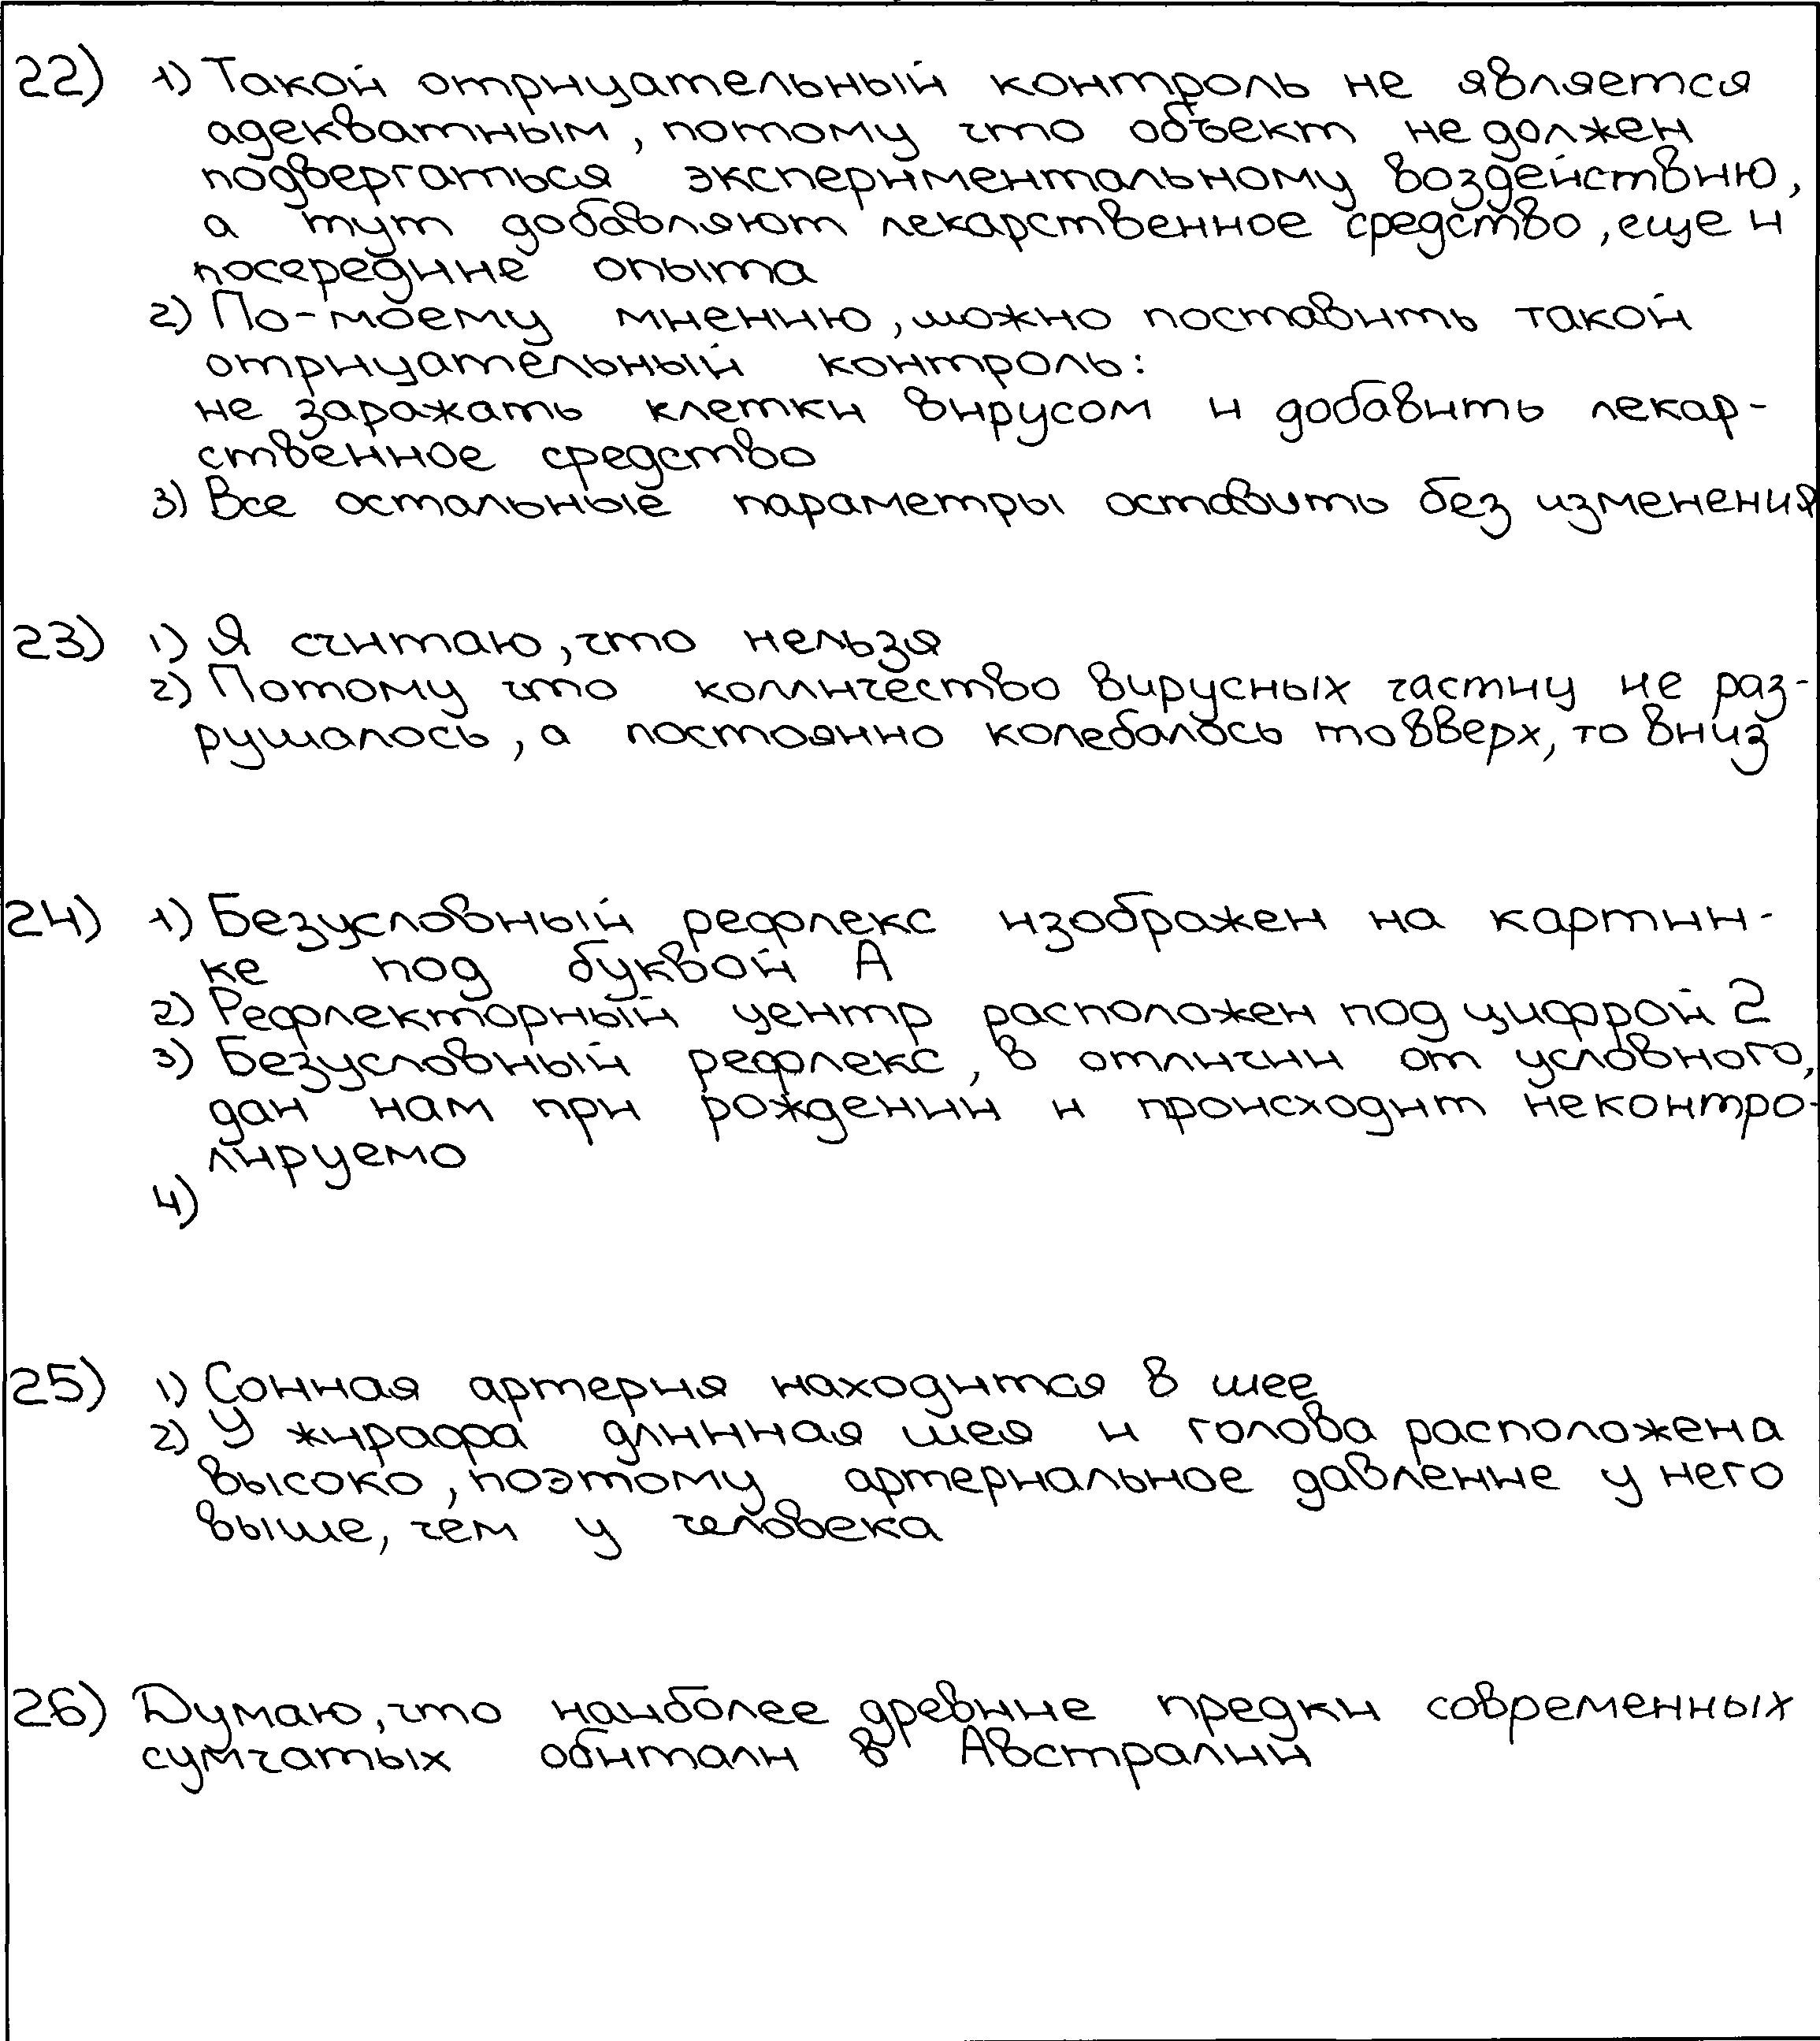 22) 1) Такой отрицательный контроль не является
адекватным, потому что объект не должен
подвергаться экспериментальному воздействию,
а тут добавляют лекарственное средство, еще и
посередине опыта
2) По-моему мнению, можно поставить такой
отрицательный контроль:
не заражать клетки вирусом и добавить лекар-
ственное средство
3) Все остальные параметры оставить без изменения
23) 1) Я считаю, что нельзя
2) Потому что колличество вирусных частиц не раз-
рушалось, а постоянно колебалось то вверх, то вниз
24) 1) Безусловный рефлекс изображен на картин-
ке под буквой А
2) Рефлекторный центр расположен под цифрой 2
3) Безусловный рефлекс, в отличии от условного,
дан нам при рождении и происходит неконтро-
лируемо
4)
25) 1) Сонная артерия находится в шее
2) У жирафа длинная шея и голова расположена
высоко, поэтому артериальное давление у него
выше, чем у человека
26) Думаю, что наиболее древние предки современных
сумчатых обитали в Австралии